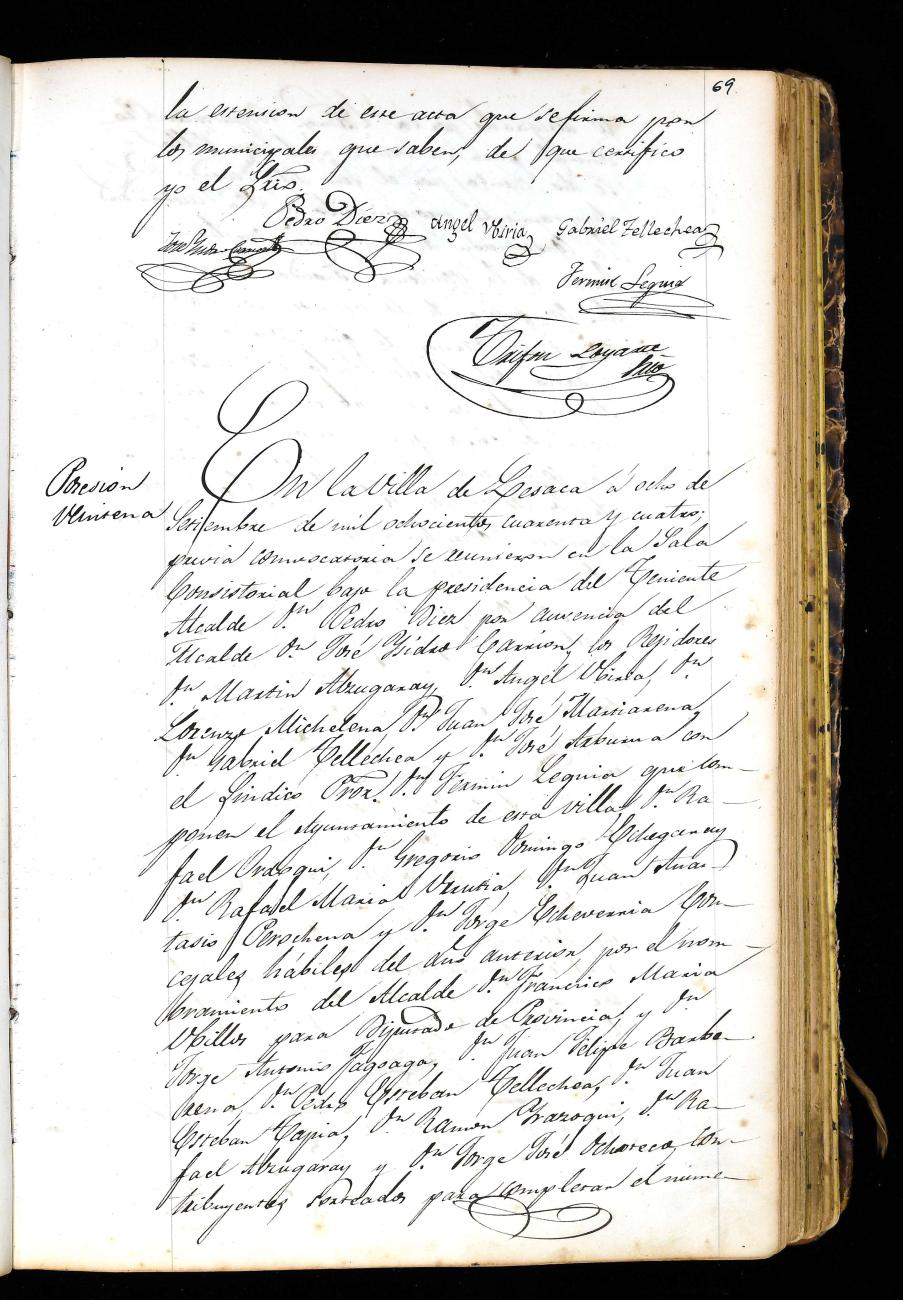 69
la estension de este acta que se firma por
los municipales que saben, de que certifico
yo el Srio.
Pedro Diez Angel Viria Gabriel Tellechea
José
Fermin Leguia
Trifon Loyarte
Srio
Posesion
Veintena
En la Villa de Lesaca á ocho de
Setiembre de mil ochocientos cuarenta y cuatro;
previa convocatoria se reunieron en la Sala
Consistorial bajo la presidencia del Teniente
Alcalde Dn Pedro Diez por ausencia del
Alcalde Dn José Ysidro Carrion, los Rejidores
Dn Martin Alzugaray, Dn Angel Viria, Dn
Lorenzo Michelena, Dn Juan José Marsiarena,
Dn Gabriel Tellechea y Dn José Arburua con
el Sindico Pror. Dn Fermin Leguia que com-
ponen el Ayuntamiento de esta villa Dn Ra-
fael Ordoqui, Dn Gregorio Domingo Echegaray
Dn Rafael Maria Urrutia, Dn Juan Anas-
tasio Perochena y Dn Jorge Echeverria Con-
cejales hábiles del año anterior, por el nom-
bramiento del Alcalde Dn Francisco Maria
para Diputado de Provincia, y Dn
Jorge Antonio Fagoaga, Dn Juan Felipe Barbe-
rena, Dn Pedro Esteban Tellechea, Dn Juan
Esteban Tapia, Dn Ramon Yrazoqui, Dn Ra-
fael Alzugaray y Dn Jorge José Ochoteco, con-
tribuyentes sorteados para completar el nume-